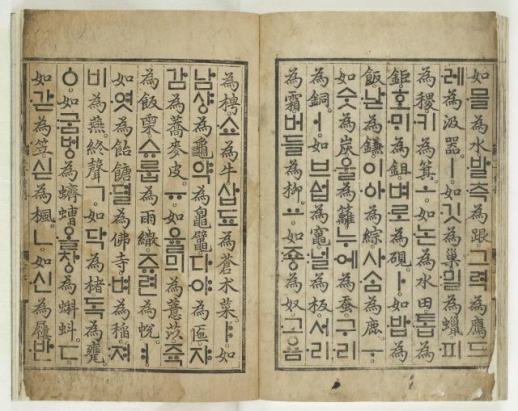 如믈為水。발측為跟。그력為鴈。드
레為汲器。ㅣ。如깃為巢。밀為蠟。피
為稷。키為箕。ㅗ。如논為水田。톱為
鉅。호ᄆᆡ為鉏。벼로為硯。ㅏ。如밥為
飯。낟為鎌。이ᅌᅡ為綜。사ᄉᆞᆷ為鹿。ㅜ。
如숫為炭。울為籬。누에為蚕。구리
為銅。ㅓ。如브ᅀᅥᆸ為竈。널為板。서리
為霜。버들為柳。ㅛ。如죠ᇰ為奴。고욤
為梬。쇼為牛。삽됴為蒼朮菜。ㅑ。如
남샤ᇰ為龜。약為𪓟鼊。다야為匜。쟈
감為蕎麥皮。ㅠ。如율믜為薏苡。쥭
為飯𣖄。슈룹為雨繖。쥬련為帨。ㅕ。
如엿為飴餹。뎔為佛寺。벼為稻。져
비為燕。終聲ㄱ。如닥為楮。독為甕。
ㆁ。如굼버ᇰ為蠐螬。올차ᇰ為蝌蚪。ㄷ。
如갇為笠。싣為楓。ㄴ。如신為屨。반